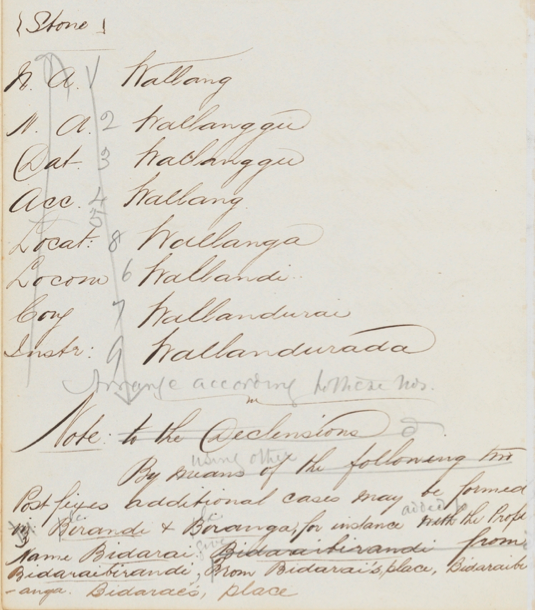 {Stone}
N. A. 1 Wallang
N. A. 2 Wallanggu
Dat. 3 Wallanggu
Acc. 4 Wallang
5
Locat: 8 Wallanga
Locom 6 Wallandi
Conj 7 Wallandurai
Instr: 9 Wallandurada
Arrange according to these Nos.
Note: to the Declensions
using other
By means of the following two
Postfixes additional cases may be formed
added
Birandi & Biranga, for instance with the Prop
Name Bidarai, Bidaraibirandi from
Bidaraibirandi, From Bidarai's place, Bidaraibi
-anga. Bidarae's, place